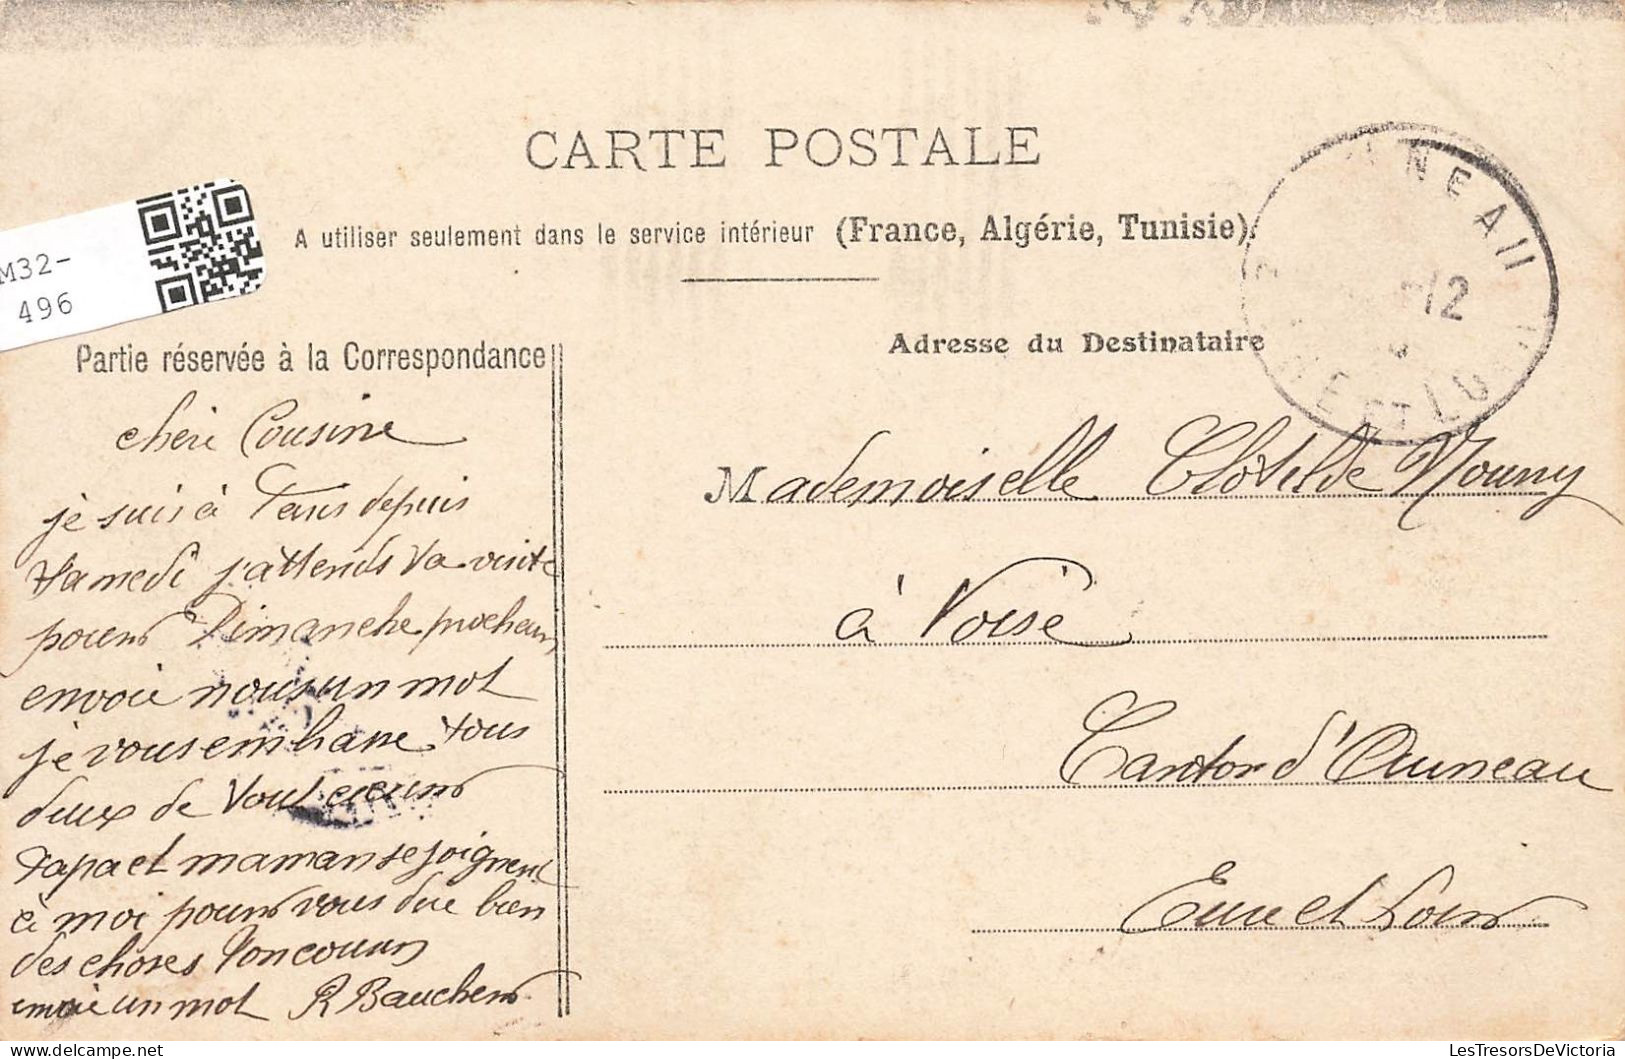 CARTE POSTALE
A utiliser seulement dans le service intérieur (France, Algérie, Tunisie).
M32-
496
NEAU
-12
E ET LOI
Partie réservée à la Correspondance
Adresse du Destinataire
chéri Cousine
je suis à Paris depuis
Samedi j'attends ta visite
pour Dimanche prochain
envoie nous un mot
je vous embrasse tous
deux de tout cœur
Papa et maman se joignent
à moi pour vous dire bien
des choses Ton cousin
envoie un mot R Baucher
Mademoiselle Clotilde Nouny
à Voise
Canton d'Auneau
Eure et Loir
LesTresorsDeVictoria